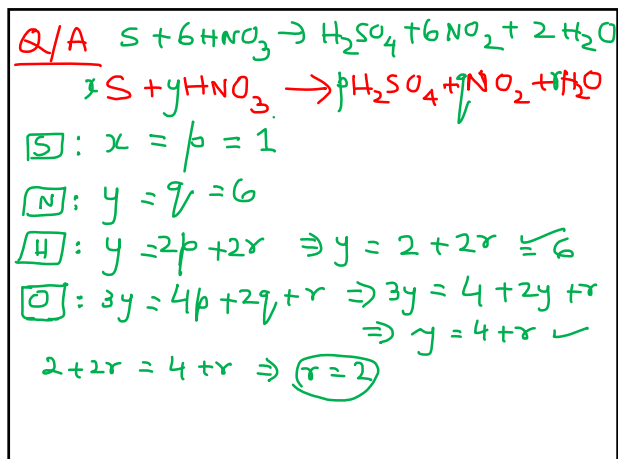 Q/A S + 6HNO₃ → H₂SO₄ + 6NO₂ + 2H₂O
xS + yHNO₃ → pH₂SO₄ + qNO₂ + rH₂O
S : x = p = 1
N : y = q = 6
H : y = 2p + 2r ⇒ y = 2 + 2r = 6
O : 3y = 4p + 2q + r ⇒ 3y = 4 + 2y + r
⇒ y = 4 + r ✓
2 + 2r = 4 + r ⇒ r = 2